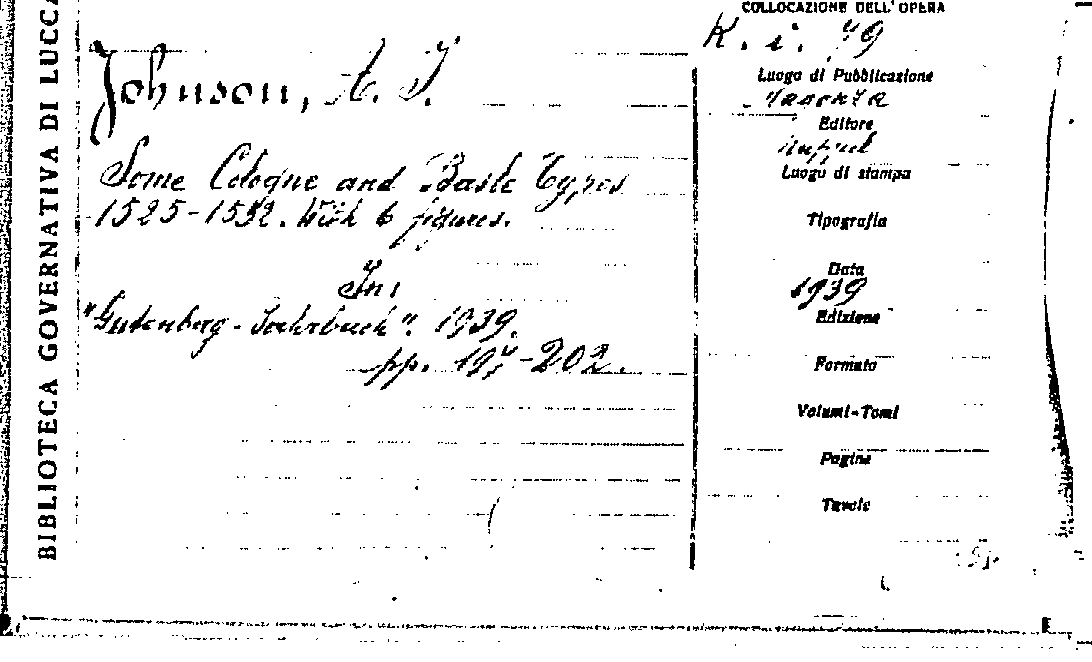 BIBLIOTECA GOVERNATIVA DI LUCCA
COLLOCAZIONE DELL'OPERA
K. i. 49
Johnson, A. F.
Some Cologne and Basle Types
1525-1532. With 6 figures.
In:
"Gutenberg-Jahrbuch". 1939.
pp. 197-202.
Luogo di Pubblicazione
Editore
Luogo di stampa
Tipografia
Data
1939
Edizione
Formato
Volumi-Tomi
Pagine
Tavole